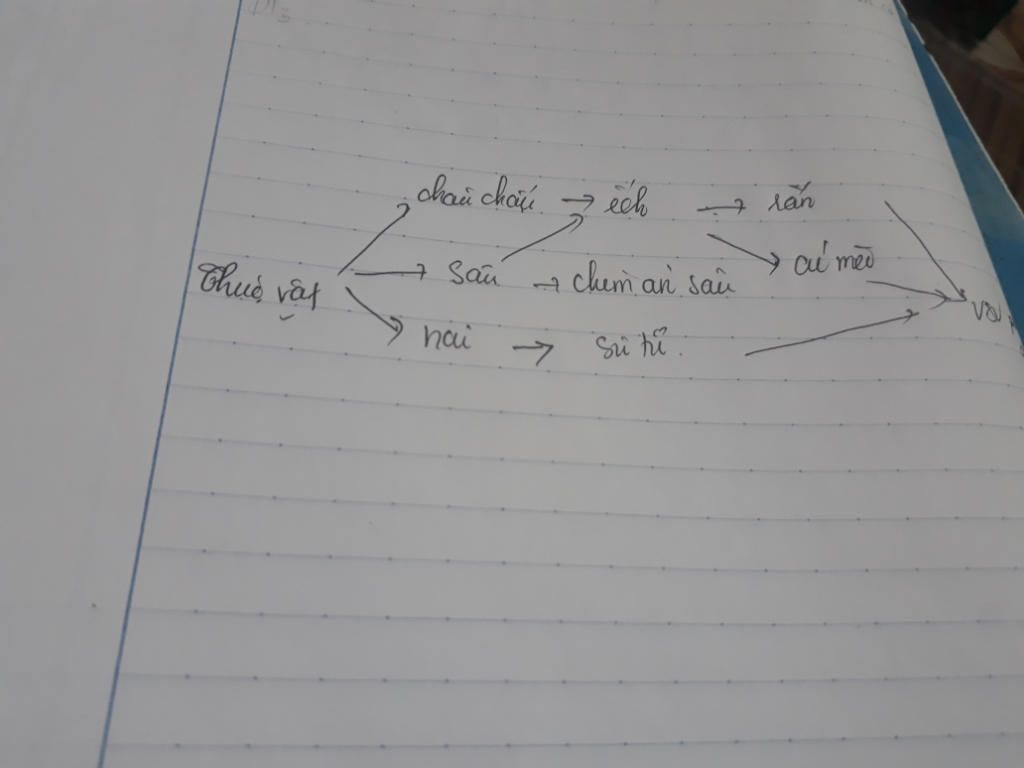 châu chấu → ếch → rắn
Thực vật → sâu → chim ăn sâu cú mèo
nai → sư tử.